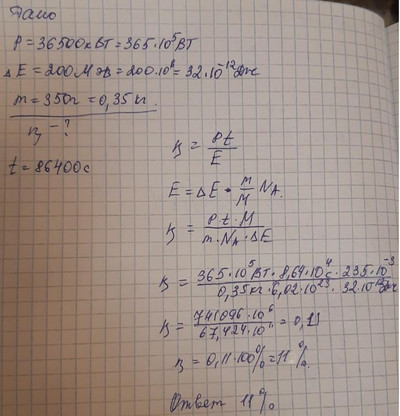 Дано
P = 36500кВт = 365·10⁵Вт
ΔE = 200МэВ = 200·10⁶ = 32·10⁻¹²Дж
m = 350г = 0,35кг.
η - ?
t = 86400с
η = Pt/E
E = ΔE · m/M N_A.
η = P·t·M/m·N_A·ΔE
η = 365·10⁵Вт·8,64·10⁴с·235·10⁻³/0,35кг·6,02·10²³·32·10⁻¹²Дж
η = 741096·10⁶/67,424·10¹¹ = 0,11
η = 0,11·100% = 11%.
Ответ 11%